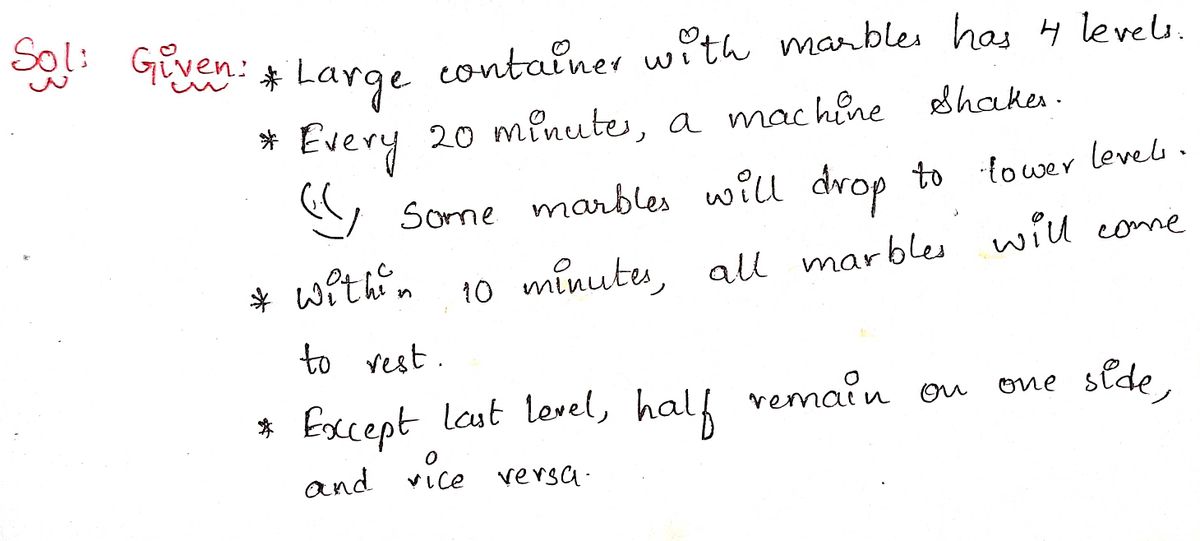 Sol: Given: * Large container with marbles has 4 levels.
* Every 20 minutes, a machine shakes.
Some marbles will drop to lower levels.
* Within 10 minutes, all marbles will come
to rest.
* Except last level, half remain on one side,
and vice versa.